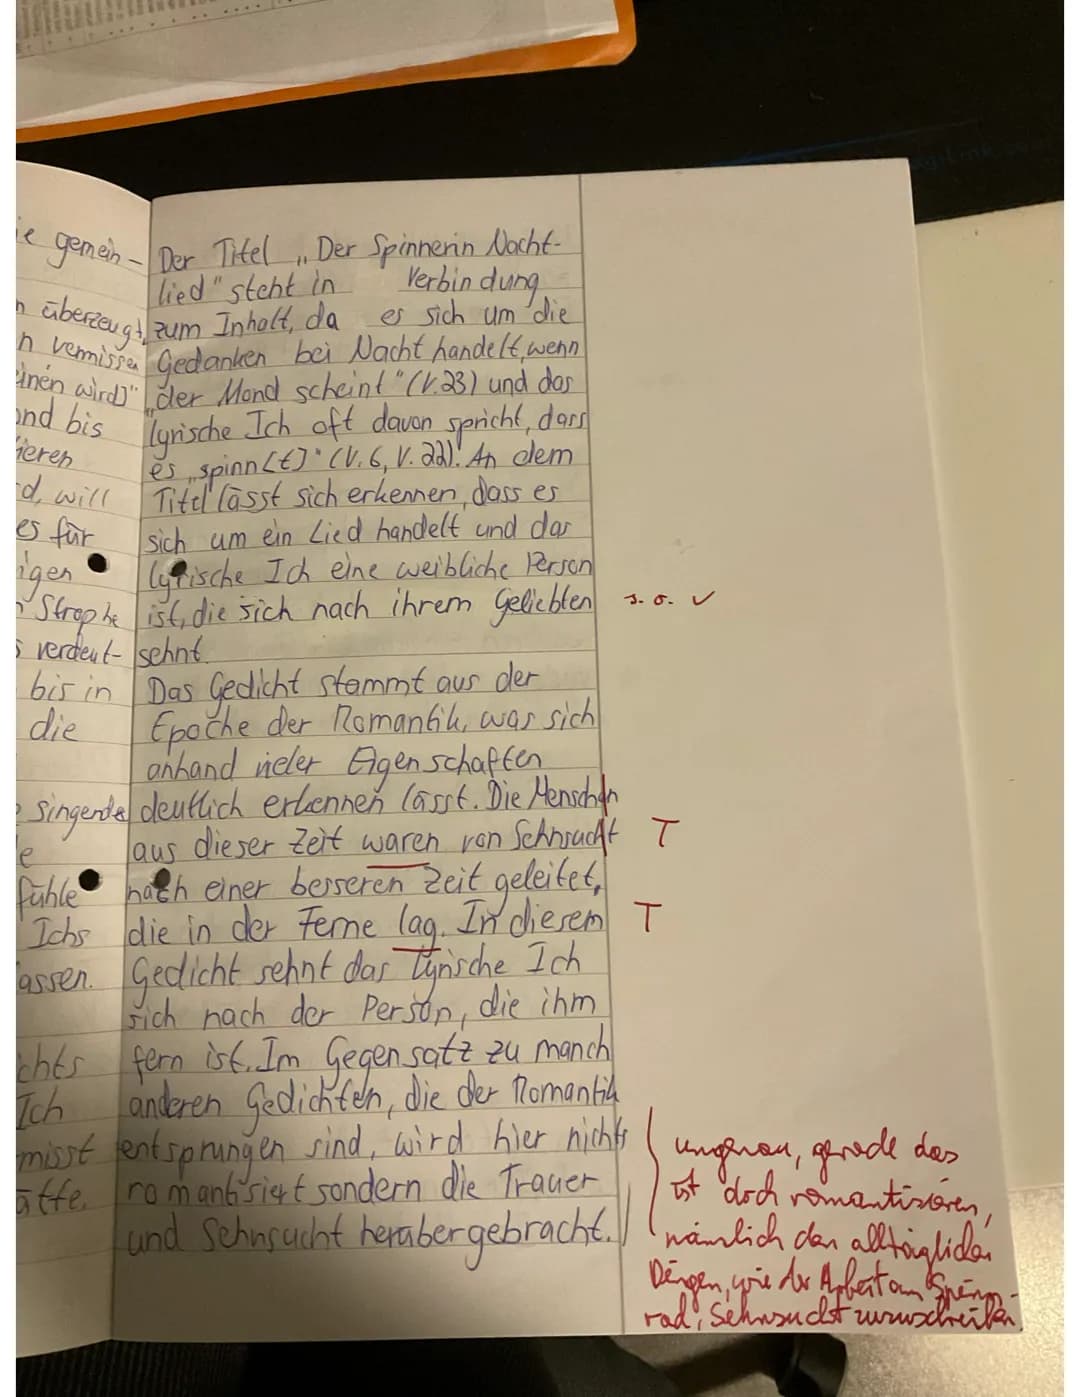 gemein-
überzeugt,
n vermissen
einen wird]"
und bis
ieren
d, will
es für
igen
Strophe
s verdeut-
bis in
die
singende
fühle
Ichs
assen.
chts
Ich
misst
ätte.
Der Titel „Der Spinnerin Nacht-
lied" steht in Verbindung
zum Inhalt, da es sich um die
Gedanken bei Nacht handelt, wenn
„der Mond scheint" (V.23) und das
lyrische Ich oft davon spricht, dass
es „spinn[t]" (V.6, V.22). An dem
Titel lässt sich erkennen, dass es
sich um ein Lied handelt und das
lyrische Ich eine weibliche Person
ist, die sich nach ihrem Geliebten
sehnt.
Das Gedicht stammt aus der
Epoche der Romantik, was sich
anhand vieler Eigenschaften
deutlich erkennen lässt. Die Menschen
aus dieser Zeit waren von Sehnsucht
nach einer besseren Zeit geleitet,
die in der Ferne lag. In diesem
Gedicht sehnt das lyrische Ich
sich nach der Person, die ihm
fern ist. Im Gegensatz zu manch
anderen Gedichten, die der Romantik
entsprungen sind, wird hier nichts
romantisiert sondern die Trauer
und Sehnsucht herübergebracht.
s. o. ✓
T
T
ungenau, gerade das
ist doch romantisieren,
nämlich den alltäglichen
Dingen, wie der Arbeit am Spinn-
rad, Sehnsucht zuzuschreiben.